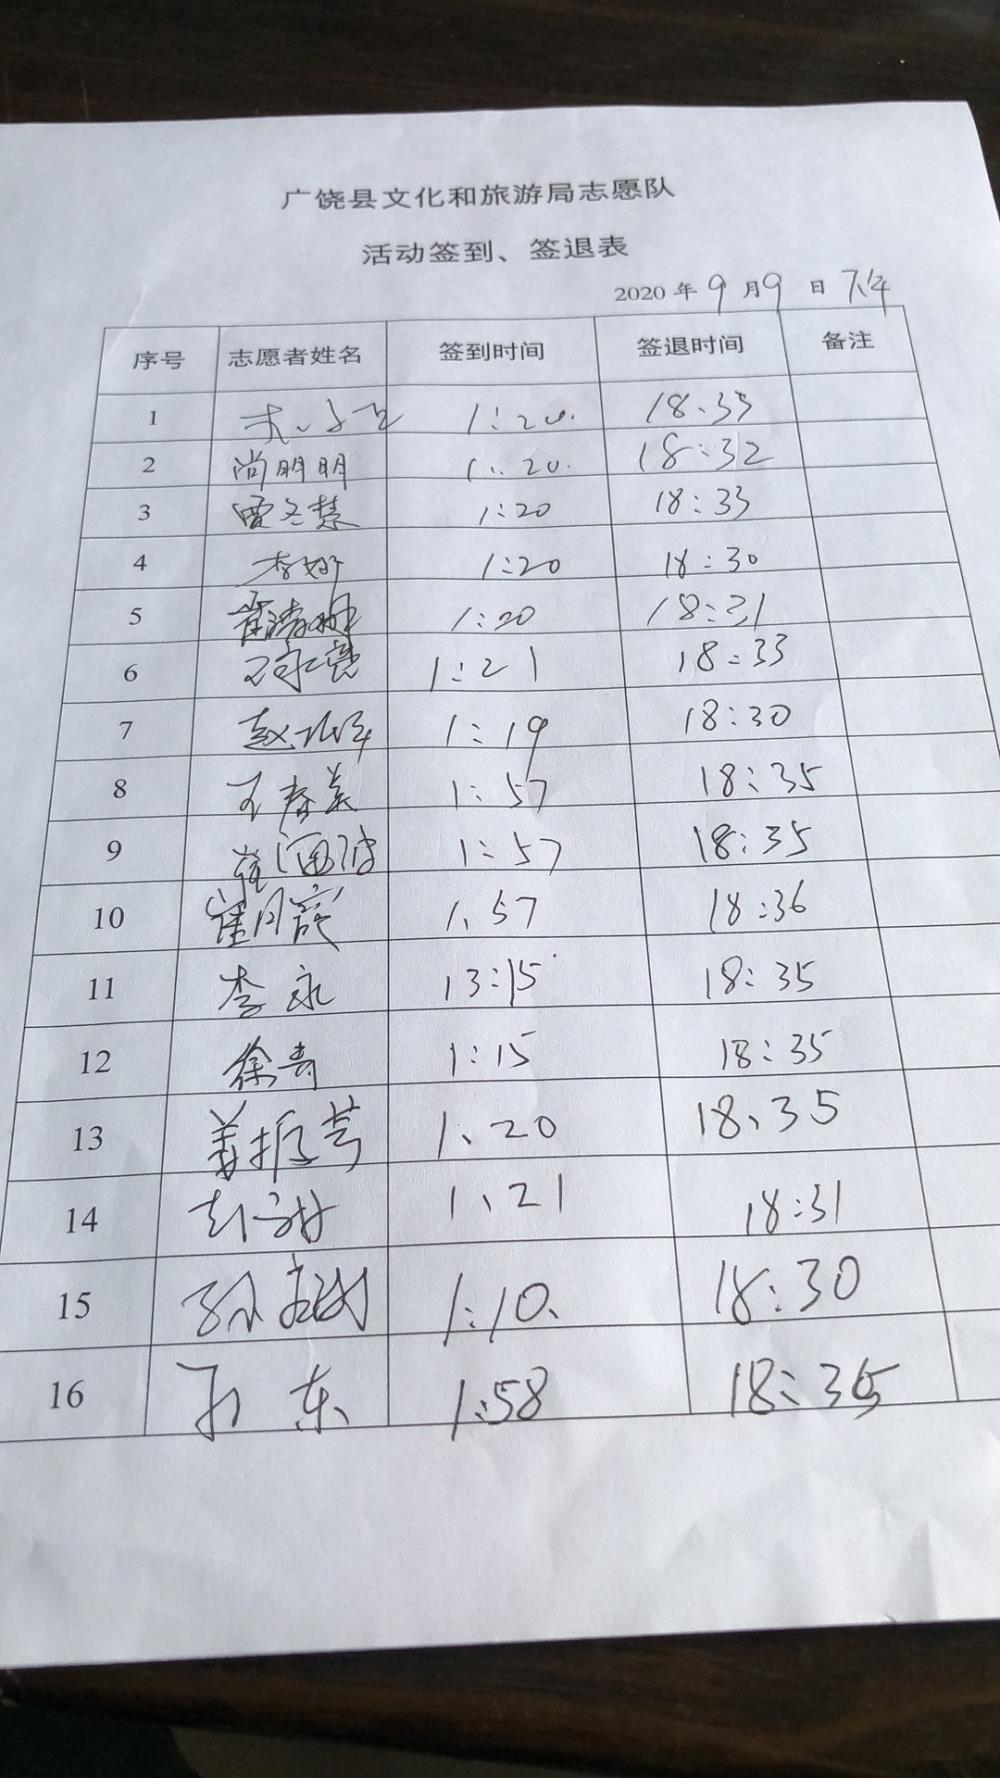 广饶县文化和旅游局志愿队
活动签到、签退表
2020 年 9 月 9 日 下午
序号 志愿者姓名 签到时间 签退时间 备注
1 1:20. 18.33
2 尚明明 1:20. 18:32
3 1:20 18:33
4 李娜 1:20 18:30
5 1:20 18:31
6 1:21 18:33
7 1:19 18:30
8 王春美 1:57 18:35
9 1:57 18:35
10 崔月霞 1、57 18:36
11 李永 13:15 18:35
12 徐青 1:15 18:35
13 姜振芳 1、20 18、35
14 1、21 18:31
15 1:10. 18:30
16 孙东 1:58 18:35